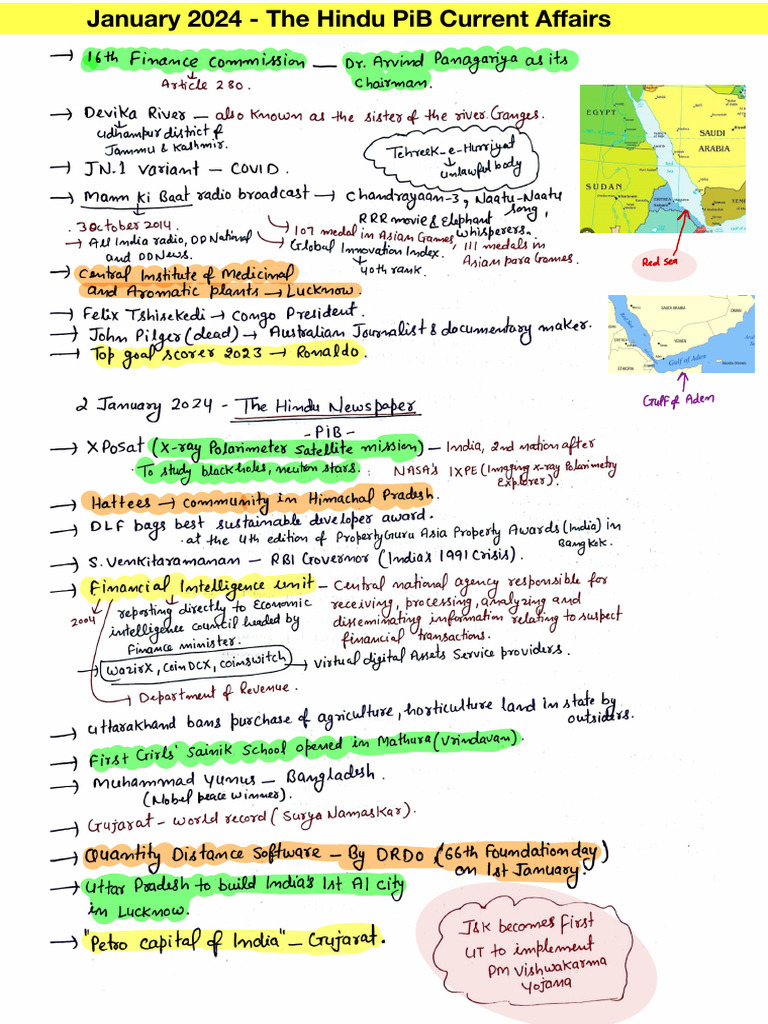 January 2024 - The Hindu PiB Current Affairs
→ 16th Finance Commission — Dr. Arvind Panagariya as its
Chairman.
Article 280.
→ Devika River — also known as the sister of the river Ganges.
Udhampur district of
Jammu & Kashmir.
Tehreek-e-Hurriyat
unlawful body
→ JN.1 variant — COVID.
→ Mann Ki Baat radio broadcast → Chandrayaan-3, Naatu-Naatu
song,
RRR movie & Elephant
whisperers.
3 October 2014.
→ All India radio, DD National
and DD News.
→ 107 medal in Asian Games, 111 medals in
Asian para Games.
→ Global Innovation Index.
40th rank.
→ Central Institute of Medicinal
and Aromatic plants → Lucknow.
→ Felix Tshisekedi → Congo President.
→ John Pilger (dead) → Australian Journalist & documentary maker.
→ Top goal scorer 2023 → Ronaldo.
EGYPT
SAUDI
ARABIA
SUDAN
YEMEN
ERITREA
ETHIOPIA
Red Sea
Red sea
SAUDI ARABIA
OMAN
Red Sea
YEMEN
ERITREA
Gulf of Aden
ETHIOPIA
Gulf of Aden
2 January 2024 - The Hindu Newspaper
- PiB -
→ XPosat (X-ray Polarimeter Satellite mission) — India, 2nd nation after
To study blackholes, neutron stars. NASA's IXPE (Imaging x-ray Polarimetry
Explorer).
→ Hattees → community in Himachal Pradesh.
→ DLF bags best sustainable developer award.
• at the 4th edition of PropertyGuru Asia Property Awards (India) in
Bangkok.
→ S. Venkitaramanan — RBI Governor (India's 1991 Crisis).
→ Financial Intelligence unit — Central national agency responsible for
receiving, processing, analyzing and
disseminating information relating to suspect
financial transactions.
2004
reporting directly to Economic
intelligence council headed by
Finance minister.
→ WazirX, CoinDCX, coinswitch → Virtual digital Assets Service providers.
→ Department of Revenue.
→ Uttarakhand bans purchase of agriculture, horticulture land in state by
outsiders.
→ First Girls' Sainik School opened in Mathura (Vrindavan).
→ Muhammad Yunus — Bangladesh.
(Nobel peace winner).
→ Gujarat - world record (Surya Namaskar).
→ Quantity Distance Software — By DRDO (66th Foundation day)
on 1st January.
→ Uttar Pradesh to build India's 1st AI city
in Lucknow.
→ "Petro capital of India" — Gujarat.
J&K becomes first
UT to implement
PM Vishwakarma
Yojana